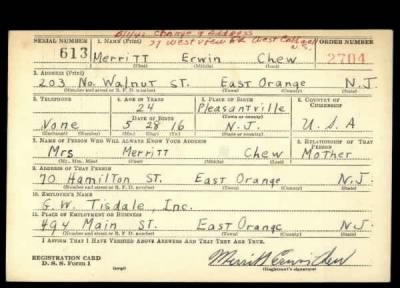 8/11/41 Change of Address
SERIAL NUMBER 1. NAME (Print) 37 West view Rd West Caldwell ORDER NUMBER
N.J.
613 Merritt Erwin Chew 2704
(First) (Middle) (Last)
2. ADDRESS (Print)
203 No. Walnut St. East Orange N.J.
(Number and street or R. F. D. number) (Town) (County) (State)
3. TELEPHONE 4. AGE IN YEARS 5. PLACE OF BIRTH 6. COUNTRY OF CITIZENSHIP
24 Pleasantville
DATE OF BIRTH (Town or county)
None 5 28 16 N.J. U.S.A
(Exchange) (Number) (Mo.) (Day) (Yr.) (State or country)
7. NAME OF PERSON WHO WILL ALWAYS KNOW YOUR ADDRESS 8. RELATIONSHIP OF THAT PERSON
Mrs Merritt Chew Mother
(Mr., Mrs., Miss) (First) (Middle) (Last)
9. ADDRESS OF THAT PERSON
70 Hamilton St. East Orange N.J.
(Number and street or R. F. D. number) (Town) (County) (State)
10. EMPLOYER'S NAME
G. W. Tisdale, Inc.
11. PLACE OF EMPLOYMENT OR BUSINESS
494 Main St. East Orange N.J.
(Number and street or R. F. D. number) (Town) (County) (State)
I AFFIRM THAT I HAVE VERIFIED ABOVE ANSWERS AND THAT THEY ARE TRUE.
REGISTRATION CARD
D. S. S. Form 1 (over) Merritt Erwin Chew
(Registrant's signature)